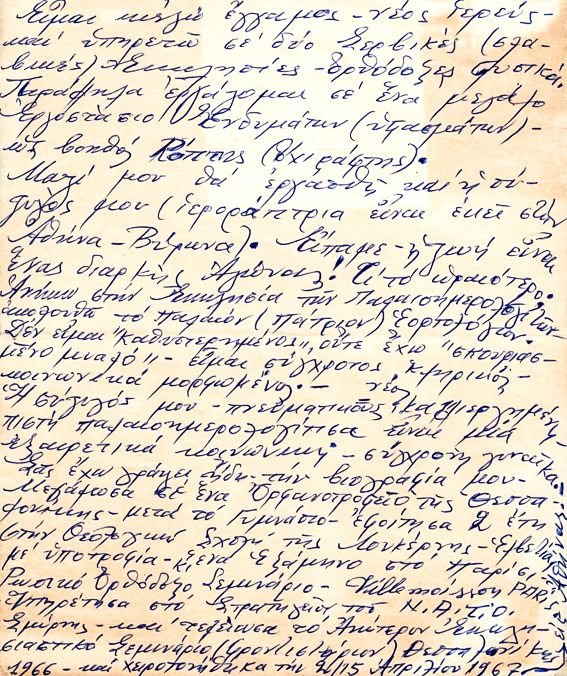 Εἶμαι κ' ἐγώ ἔγγαμος - νέος Ἱερεύς -
καί ὑπηρετῶ σέ δύο Σερβικές (σλα-
βικές) Ἐκκλησίες - Ὀρθόδοξες φυσικά.
Παράλληλα ἐργάζομαι σέ ἕνα μεγάλο
Ἐργοστάσιο Ἐνδυμάτων (ὑφασμάτων) -
ὡς βοηθός Κόπτης (ὄχι ράφτης).
Μαζί μου θά ἐργάσθῃ καί ἡ σύ-
ζυγός μου (ἱεροράπτρια εἶναι ἐκεῖ στήν
Ἀθήνα - Βύρωνα). Εἴπαμε - ἡ ζωή εἶναι
ἕνας διαρκής Ἀγώνας! Τί τό ὡραιότερο.
Ἀνήκω στήν Ἐκκλησία τῶν Παλαιοημερολογιτῶν -
ἀκολουθῶ τό παλαιόν (πάτριον) Ἑορτολόγιον.
Δέν εἶμαι "καθυστερημένος", οὔτε ἔχω "σκουριασ-
μένο μυαλό" - εἶμαι σύγχρονος κληρικός -
κοινωνικά μορφωμένος - νέος
Ἡ σύζυγός μου - πνευματικῶς καλλιεργημένη
πιστή παλαιοημερολογίτισσα εἶναι μία
ἐξαιρετικά κοινωνική - σύγχρονη γυναῖκα.
Σᾶς ἔχω γράψει ἤδη τήν βιογραφία μου -
Μεγάλωσα σέ ἕνα Ὀρφανοτροφεῖο τῆς Θεσσα-
λονίκης - μετά τό Γυμνάσιο - ἐφοίτησα 2 ἔτη
στήν Θεολογική Σχολή τῆς Λουκέρνης - Ἑλβετίας
μέ ὑποτροφία - κ' ἕνα ἑξάμηνο στό Παρίσι
Ρωσικό Ὀρθόδοξο Σεμινάριο - Villemoisson PARIS
Ὑπηρέτησα στό Στρατηγεῖο τοῦ N.A.T.O.
Σμύρνης - καί τελείωσα τό Ἀνώτερον Ἐκκλη-
σιαστικό Σεμινάριο (Φροντιστήριον) Θεσσαλονίκης
1966 - καί χειροτονήθηκα τήν 2/15 Ἀπριλίου 1967 -